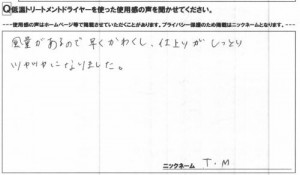 Q低温トリートメントドライヤーを使った使用感の声を聞かせてください。
使用感の声はホームページ等で掲載させていただくことがあります。プライバシー保護のため掲載はニックネームとなります。
風量があるので早くかわくし、仕上りがしっとり
ツヤツヤになりました。
ニックネーム T.M